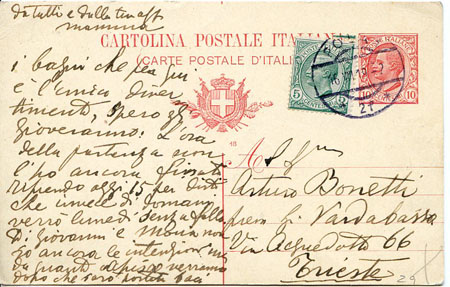 da tutti e dalla tua aff
mamma
CARTOLINA POSTALE ITALIANA
(CARTE POSTALE D'ITALIE)
i bagni che fa qui
è l'unico diver
timenti, spero gli
gioveranno. L'ora
della partenza non
l'ho ancora fissata
oggi 15 per dirti
che invece di domani
verrò lunedì senza fallo
Di Giovanni e Maria non
so ancora le intenzioni
da quanto verranno
dopo che sarò partita baci
5 CENT 5
21
10 10
18
A
Arturo Bonetti
presso Vardabasso
Via Acquedotto 66
Trieste